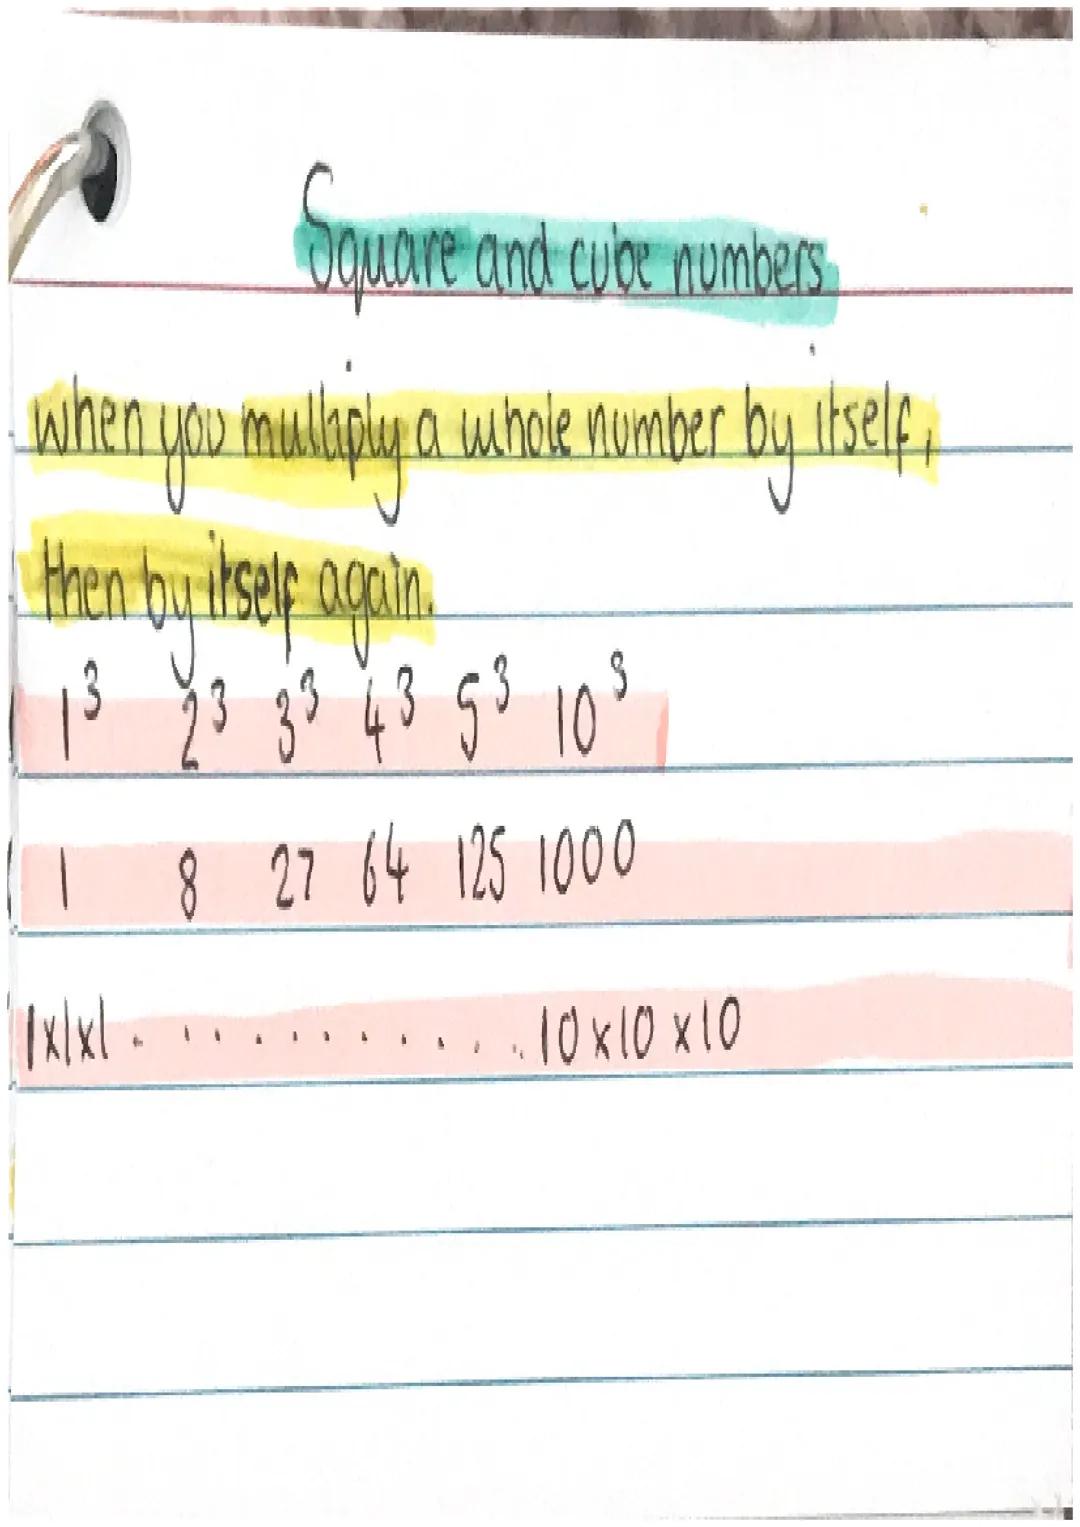 Square and cube numbers
when you multiply a whole number by itself,
then by itself again.
1³ 2³ 3³ 4³ 5³ 10³
1 8 27 64 125 1000
1x1x1 . . . . . . . . . . . . 10 x 10 x 10